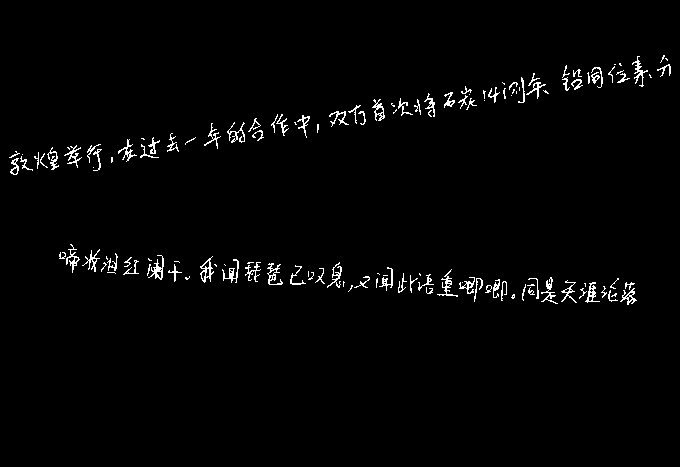 敦煌举行,在过去一年的合作中,双方首次将石炭14测年 铅同位素分
啼妆泪红阑干。我闻琵琶已叹息,又闻此语重唧唧。同是天涯沦落